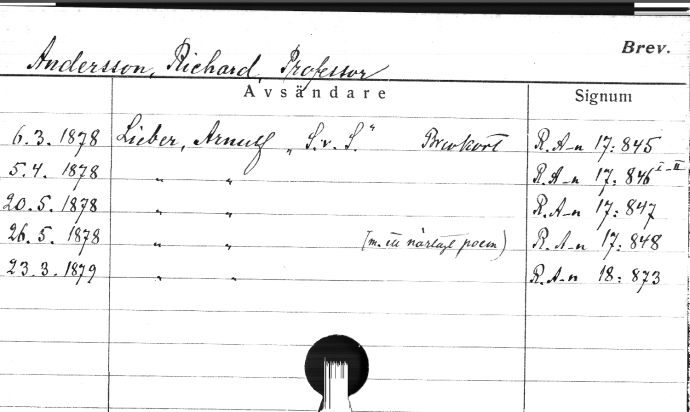 Brev.
Andersson, Richard, Professor
Avsändare Signum
6.3.1878 Lieber, Arnulf „S.v.S.“ Brevkort R.A-n 17:845
5.4.1878 „ „ R.A-n 17:846 I-II
20.5.1878 „ „ R.A-n 17:847
26.5.1878 „ „ (m. ett närlagt poem) R.A-n 17:848
23.3.1879 „ „ R.A-n 18:873